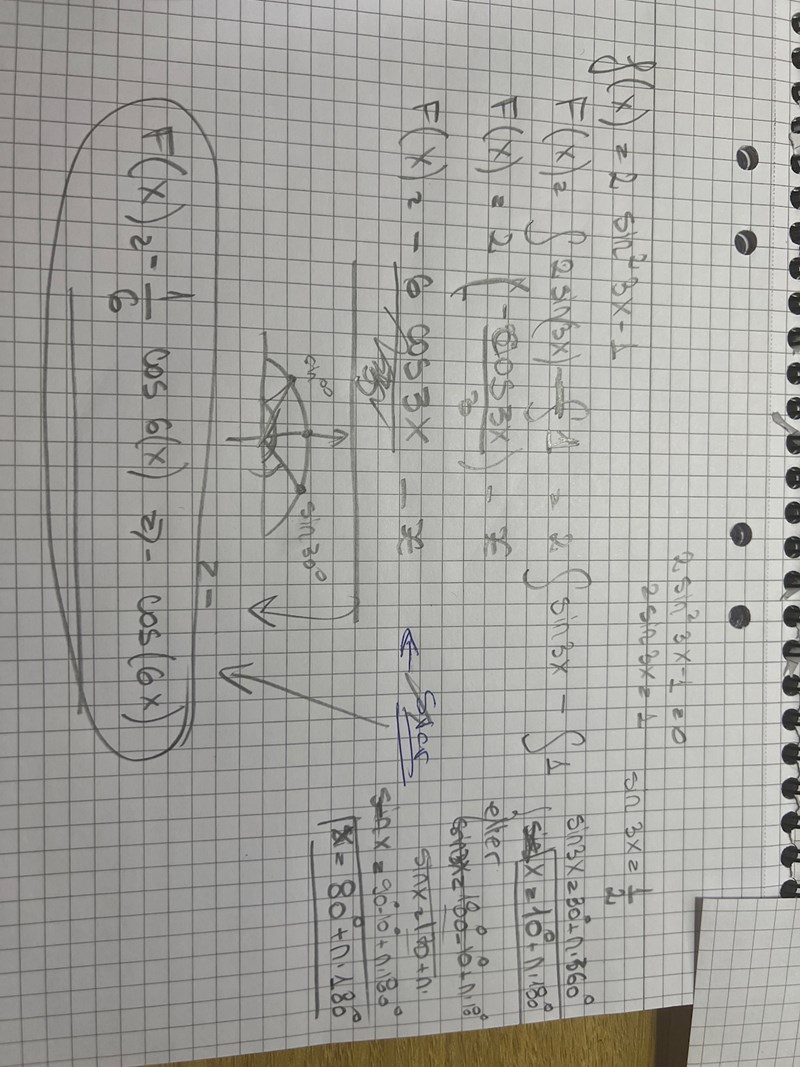 f(x) = 2 sin² 3x - 1
F(x) = ∫ 2 sin(3x) - ∫ 1 = 2 ∫ sin 3x - ∫ 1
F(x) = 2 ( - cos 3x / 3 ) - x
F(x) = - 6 cos 3x - x
sin 30°
F(x) = - 1/6 cos 6(x) => - cos(6x)
2 sin² 3x - 1 = 0
2 sin 3x = 1
sin 3x = 1/2
sin 3x = 30° + n·360°
x = 10° + n·180°
eller
sin x = 180° - 10° + n·18°
sin x = 170 + n·
sin x = 90 - 10° + n·180°
x = 80° + n·180°